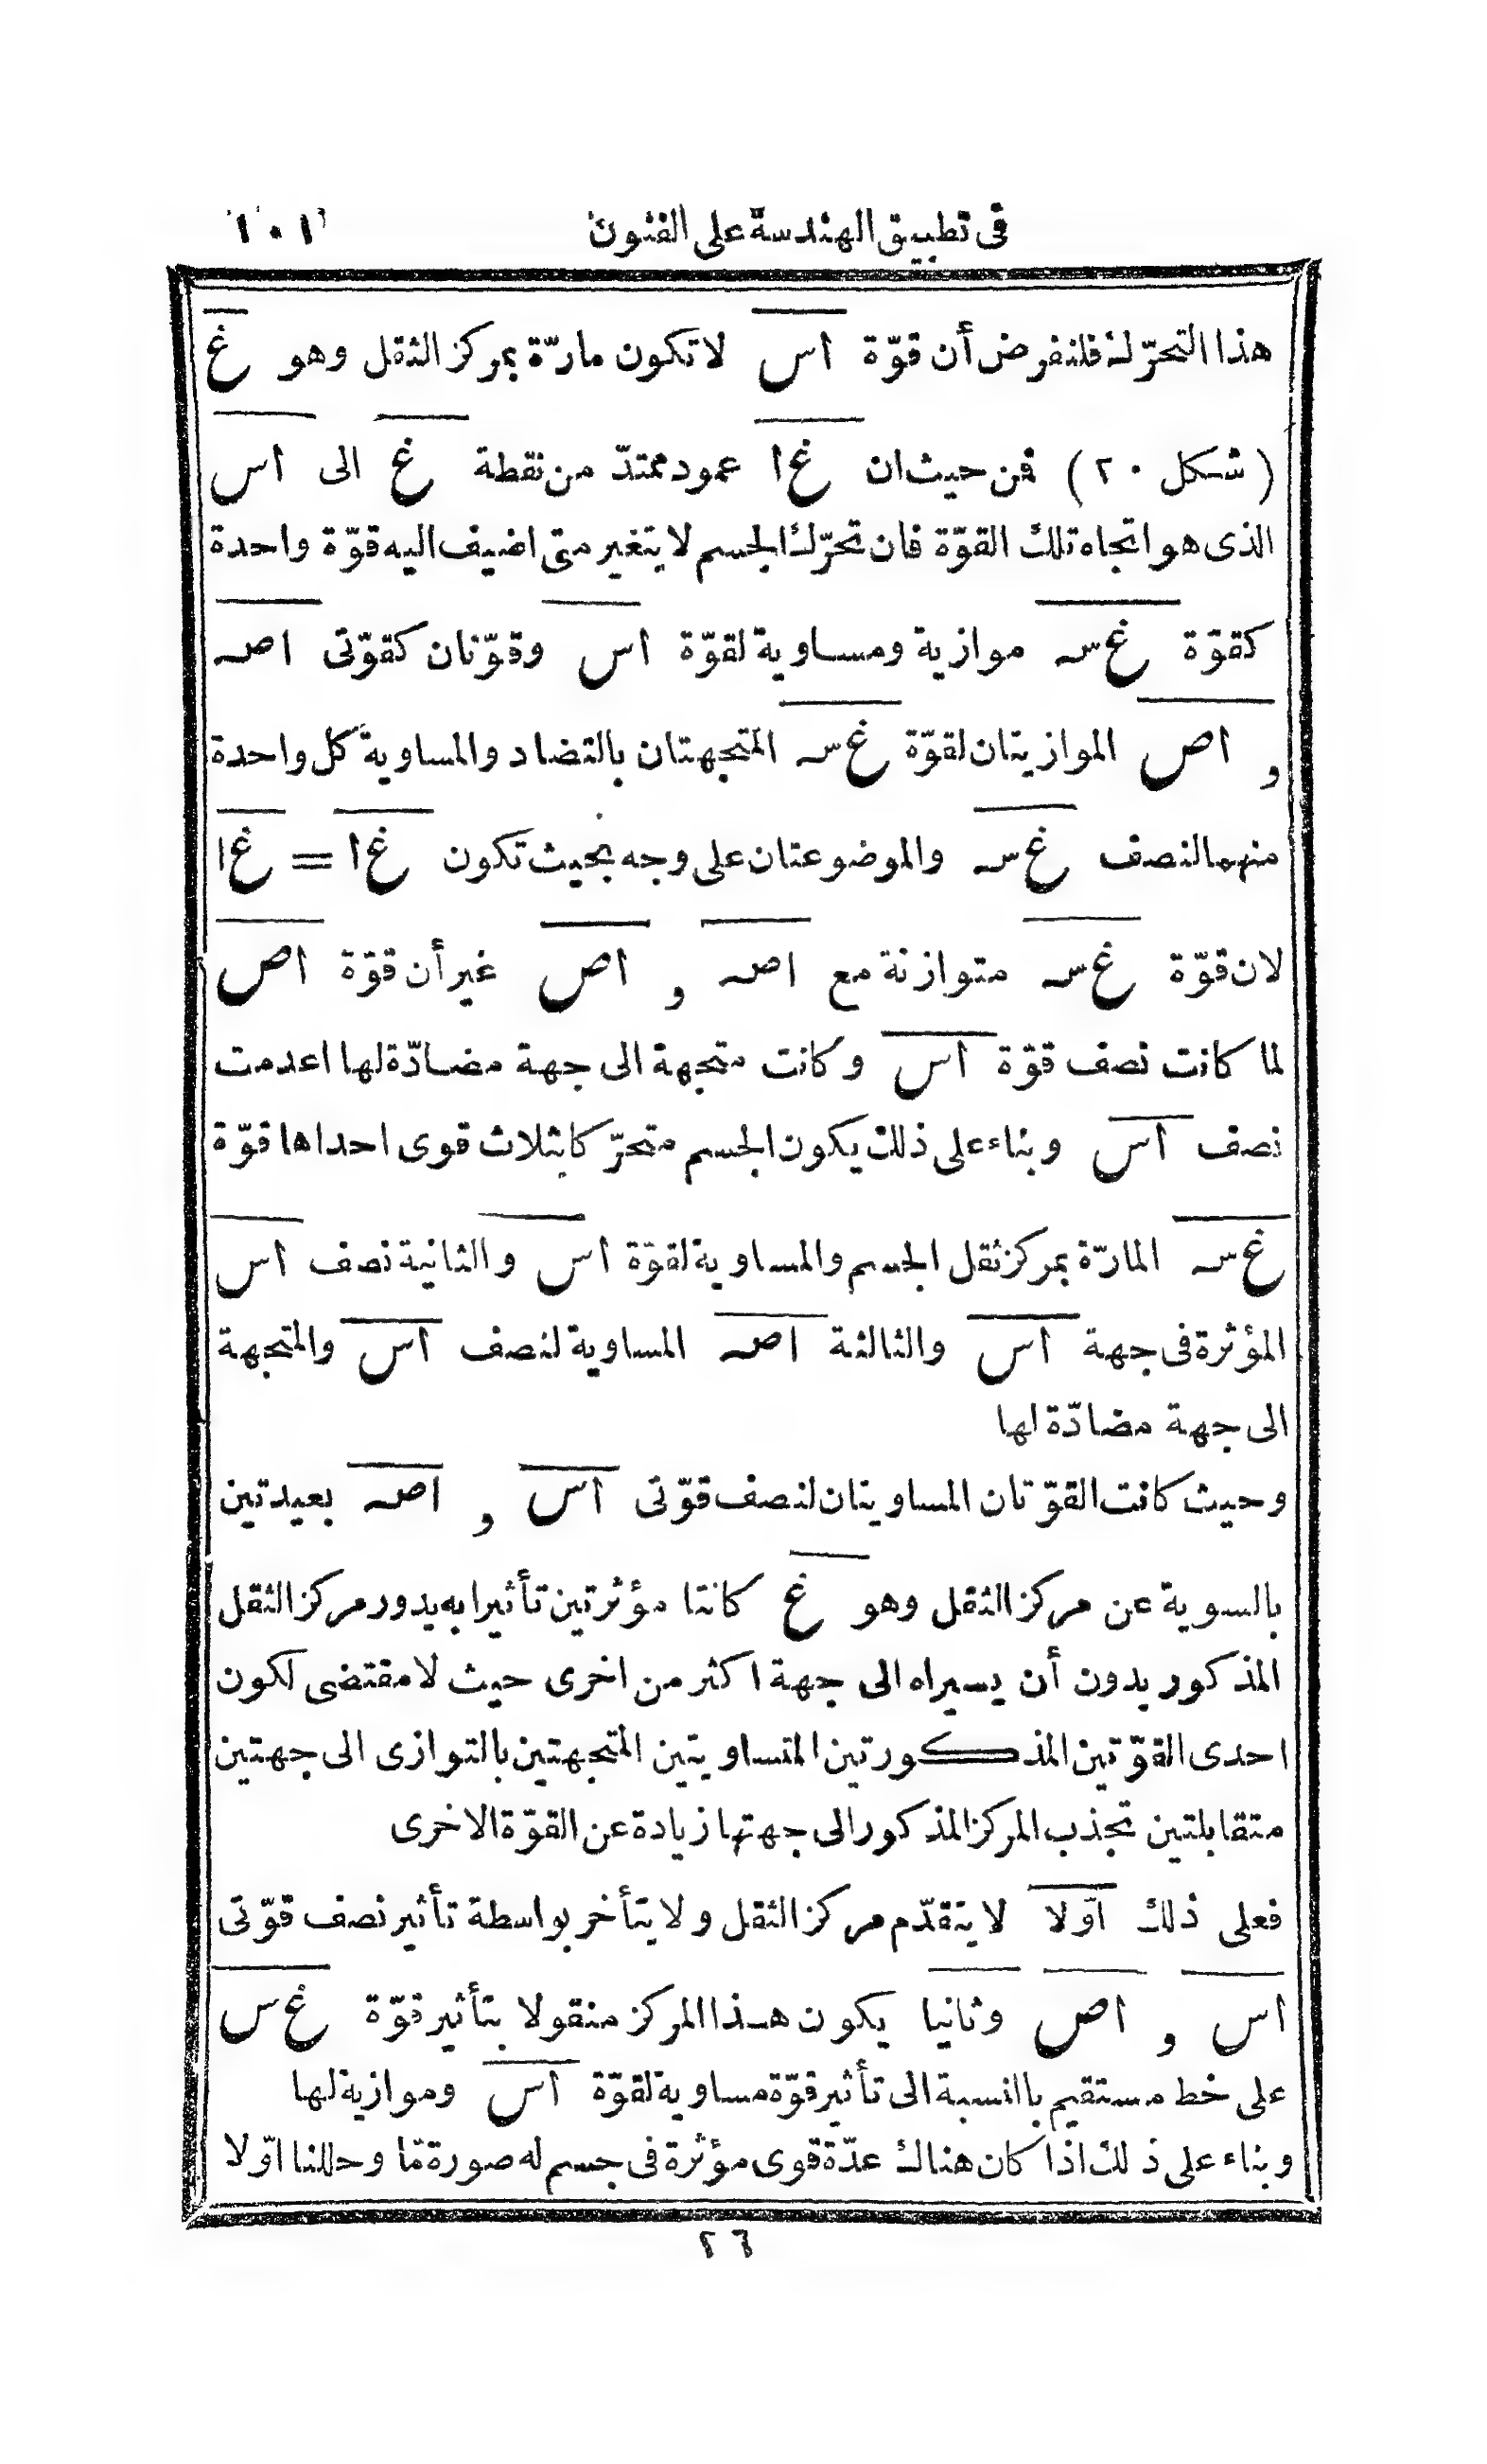 فى تطبيق الهندسة على الفنون ١٠١
هذا التحرّك فلنفرض أن قوّة اس لا تكون مارّة بمركز الثقل وهو غ
(شكل ٢٠) فمن حيث ان غ ا عمود ممتدّ من نقطة غ الى اس
الذى هو اتجاه تلك القوّة فان تحرّك الجسم لا يتغير متى اضيف اليه قوّة واحدة
كقوّة غ سہ موازية ومساوية لقوّة اس وقوّتان كقوّتى اصہ
و اص الموازيتان لقوّة غ سہ المتجهتان بالتضاد والمساوية كل واحدة
منهما لنصف غ سہ والموضوعتان على وجه بحيث تكون غ ا = غ ا
لان قوّة غ سہ متوازنة مع اصہ و اص غير أن قوّة اص
لما كانت نصف قوّة اس وكانت متجهة الى جهة مضادّة لها اعدمت
نصف اس وبناء على ذلك يكون الجسم متحرّكا بثلاث قوى احداها قوّة
غ سہ المارّة بمركز ثقل الجسم والمساوية لقوّة اس والثانية نصف اس
المؤثرة فى جهة اس والثالثة اصہ المساوية لنصف اس والمتجهة
الى جهة مضادّة لها
وحيث كانت القوّتان المساويتان لنصف قوّتى اس و اصہ بعيدتين
بالسوية عن مركز الثقل وهو غ كانتا مؤثرتين تأثيرا به يدور مركز الثقل
المذكور بدون أن يسيراه الى جهة اكثر من اخرى حيث لا مقتضى لكون
احدى القوّتين المذكورتين المتساويتين المتجهتين بالتوازى الى جهتين
متقابلتين تجذب المركز المذكور الى جهتها زيادة عن القوّة الاخرى
فعلى ذلك اوّلا لا يتقدّم مركز الثقل ولا يتأخر بواسطة تأثير نصف قوّتى
اس و اص وثانيا يكون هذا المركز منقولا بتأثير قوّة غ س
على خط مستقيم بالنسبة الى تأثير قوّة مساوية لقوّة اس وموازية لها
وبناء على ذلك اذا كان هناك عدّة قوى مؤثرة فى جسم له صورة مّا وحللنا اوّلا
٢٦